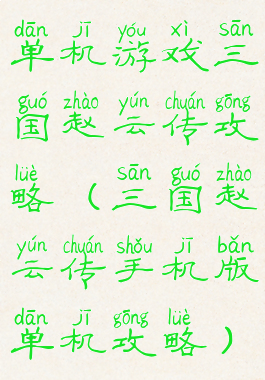 dān jī yóu xì sān
单机游戏三
guó zhào yún chuán gōng
国赵云传攻
lüè sān guó zhào
略（三国赵
yún chuán shǒu jī bǎn
云传手机版
dān jī gōng lüè
单机攻略）